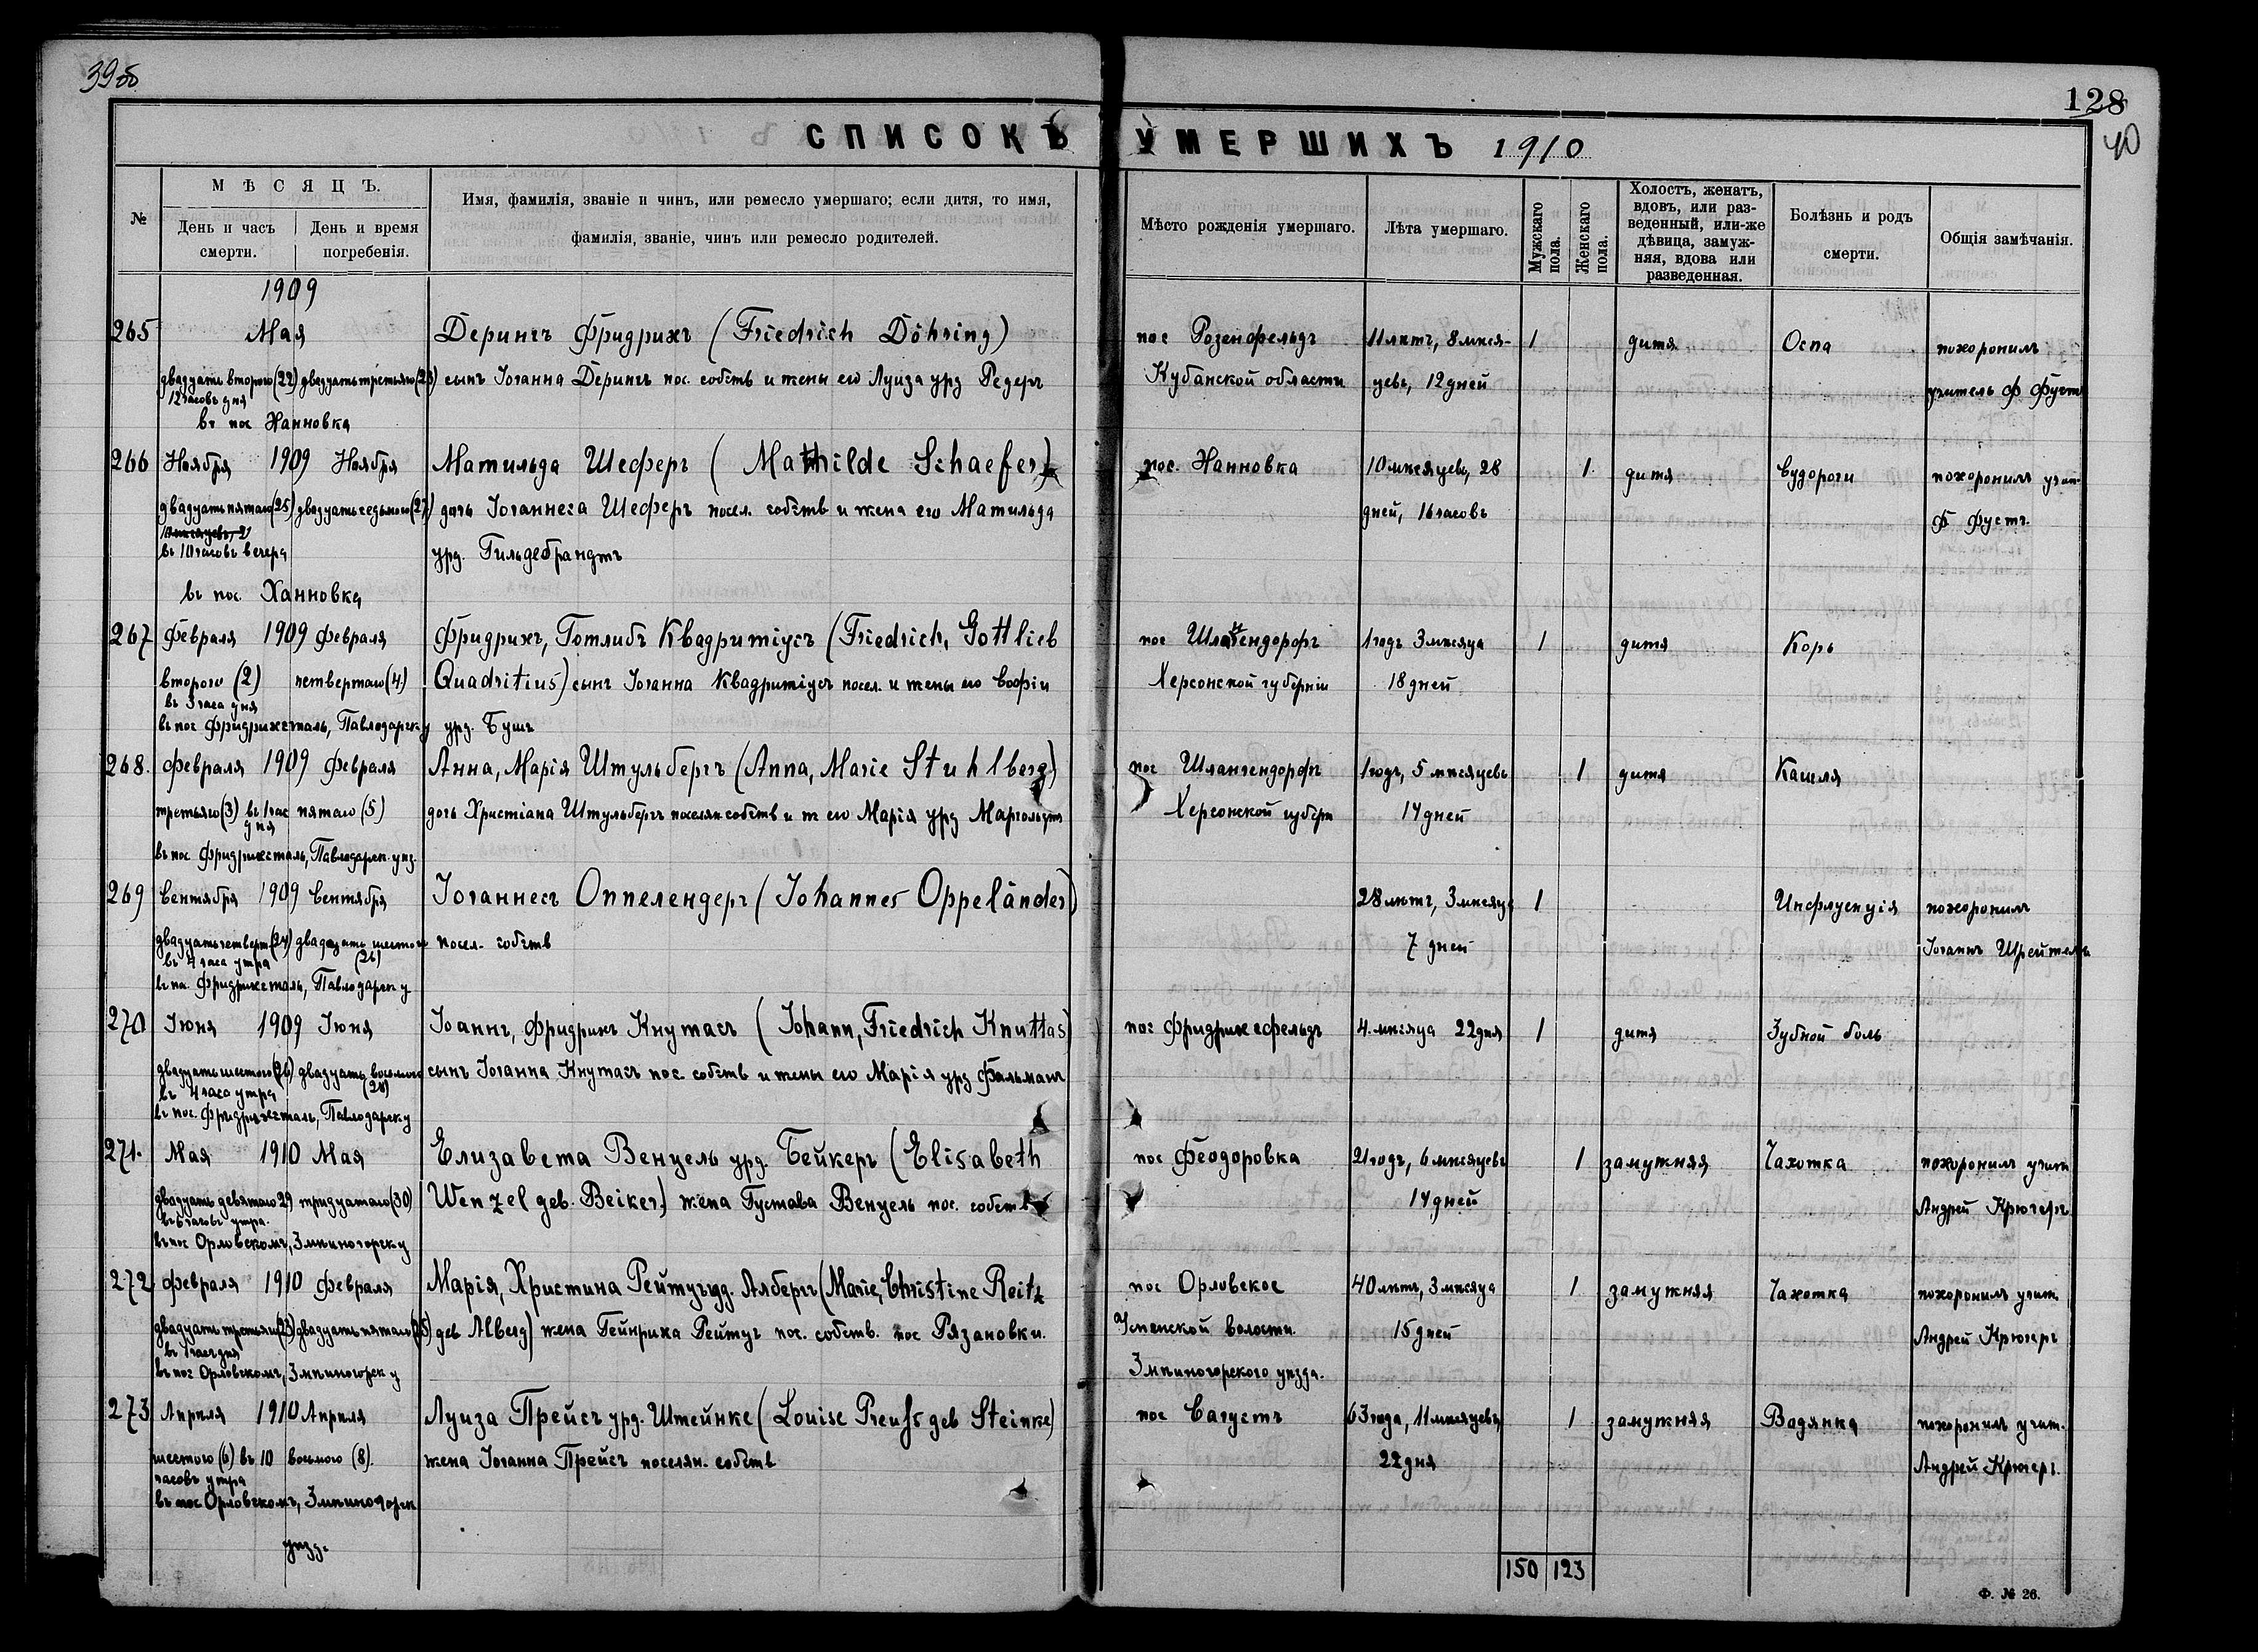 39об
128
40
СПИСОКЪ УМЕРШИХЪ 1910
№
МѢСЯЦЪ.
День и часъ смерти.
День и время погребенія.
Имя, фамилія, званіе и чинъ, или ремесло умершаго; если дитя, то имя,
фамилія, званіе, чинъ или ремесло родителей.
Мѣсто рожденія умершаго.
Лѣта умершаго.
Мужскаго пола.
Женскаго пола.
Холостъ, женатъ,
вдовъ, или раз-
веденный, или-же
дѣвица, замуж-
няя, вдова или
разведенная.
Болѣзнь и родъ
смерти.
Общія замѣчанія.
1909
265 Мая Дерингъ Фридрихъ (Friedrich Döhring) пос Розенфельдъ 11лѣтъ, 8мѣся- 1 дитя Оспа похоронилъ
двадцать второго (22) двадцать третьяго (23) сынъ Іоганна Дерингъ пос. собств и жены его Луиза урд Редеръ Кубанской области цевъ, 12дней учитель Ф Фустъ
12часовъ дня
въ пос Ханновка
266 Ноября 1909 Ноября Матильда Шеферъ (Mathilde Schaefer) пос. Ханновка 10мѣсяцевъ, 28 1. дитя Судороги похоронилъ учит-
двадцать пятаго (25) двадцать седьмого (27) дочь Іоганнеса Шеферъ посел. собств и жена его Матильда дней, 16часовъ Ф Фустъ.
въ 10часовъ вечера урд. Гильдебрандтъ
въ пос. Ханновка
267 Февраля 1909 Февраля Фридрихъ, Готлибъ Квадритіусъ (Friedrich, Gottlieb пос Шлангендорфъ 1годъ 3мѣсяца 1 дитя Корь
второго (2) четвертаго (4) Quadritius) сынъ Іоганна Квадритіусъ посел. и жены его Софіи Херсонской губерніи 18дней
въ 3часа дня
въ пос Фридрихсталь, Павлодарск у урд. Бушъ
268. Февраля 1909 Февраля Анна, Марія Штульбергъ (Anna, Marie Stuhlberg) пос Шлангендорфъ 1годъ, 5мѣсяцевъ 1 дитя Кашля
третьяго (3) въ 1час дня пятаго (5) дочь Христіана Штульбергъ поселян собств и ж его Марія урд Маргольцтъ Херсонской губерн 14дней
въ пос Фридрихсталь, Павлодарск. уѣз.
269 Сентября 1909 Сентября Іоганнесъ Оппелендеръ (Johannes Oppeländer) 28лѣтъ, 3мѣсяца 1 Инфлуенція похоронилъ
двадцать четверт (24) двадцать шестого (26) посел. собств 7 дней Іоганнъ Шрейтель
въ 4часа утра
въ пос. Фридрихсталь, Павлодарск у
270 Іюня 1909 Іюня Іоаннъ, Фридрихъ Кнутасъ (Johann, Friedrich Knuttas) пос Фридрихсфельдъ 4.мѣсяца 22дня 1 дитя Зубной боль
двадцать шестого (26) двадцать восьмого (28) сынъ Іоганна Кнутасъ пос. собств и жены его Марія урд Фальманъ
въ 4часа утра
въ пос. Фридрихсталь, Павлодарск у
271. Мая 1910 Мая Елизавета Венцель урд. Бейкеръ (Elisabeth пос Феодоровка 21годъ, 6мѣсяцевъ 1 замужняя Чахотка похоронилъ учит
двадцать девятаго 29 тридцатаго (30) Wenzel geb. Beiker.) жена Густава Венцель пос. собств 14дней Андрей Крюгеръ
въ 6часовъ утра.
въ пос Орловскомъ, Змѣиногорск у
272 Февраля 1910 Февраля Марія, Христина Рейтцъ урд. Албергъ (Marie, Christine Reitz пос Орловское 40лѣтъ, 3мѣсяца 1 замужняя Чахотка похоронилъ учит.
двадцать третьяго (23) двадцать пятаго (25) geb Alberg) жена Гейнриха Рейтцъ пос. собств. пос Рязановки. Успенской волости. 15дней Андрей Крюгеръ
въ 1часъ дня
въ пос Орловскомъ, Змѣиногорск у Змѣиногорскаго уѣзда.
273 Апрѣля 1910 Апрѣля Луиза Прейсъ урд. Штейнке (Louise Preuß geb Steinke) пос Сагустъ 63года, 11мѣсяцевъ, 1 замужняя Водянка похоронилъ учит.
шестого (6) въ 10 восьмого (8). жена Іоганна Прейсъ поселян. собств 22дня Андрей Крюгеръ.
часовъ утра
въ пос Орловскомъ, Змѣиногорск
уѣзд.
150 123
Ф. № 26.